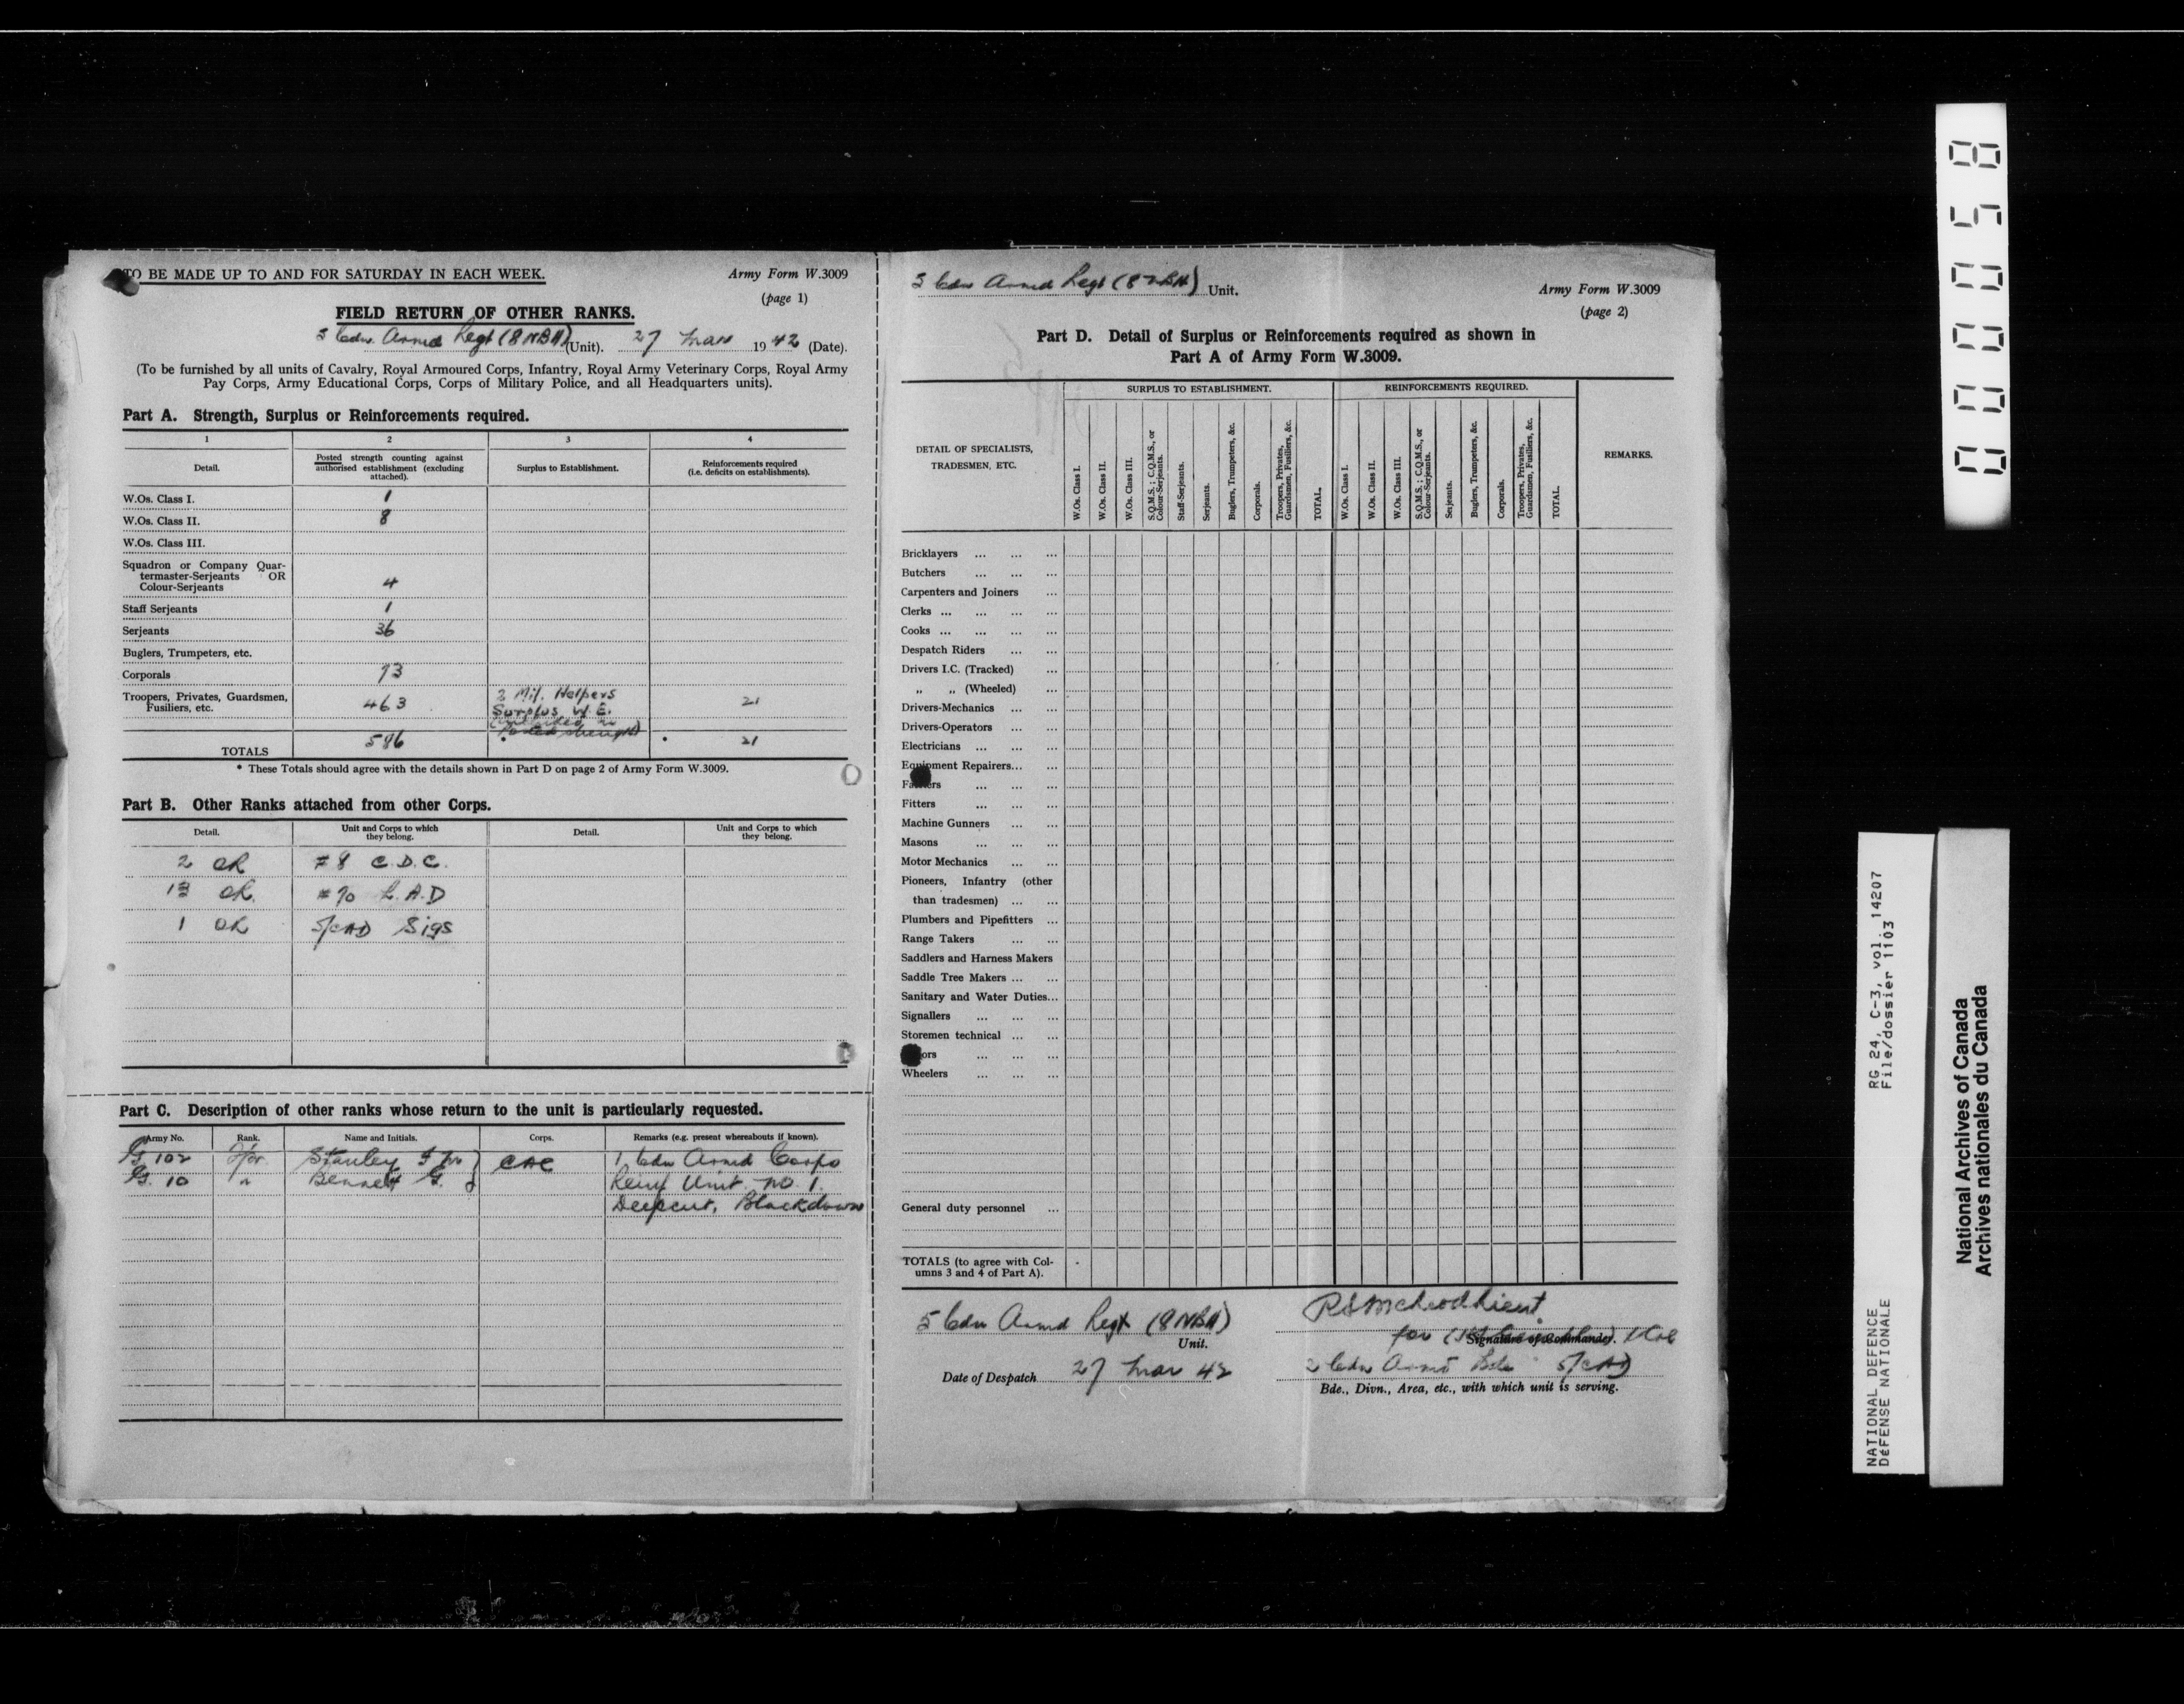 TO BE MADE UP TO AND FOR SATURDAY IN EACH WEEK.
Army Form W.3009
(page 1)
FIELD RETURN OF OTHER RANKS.
5 Cdn. Armd Regt (8 NBH) (Unit). 27 Mar 1942 (Date).
(To be furnished by all units of Cavalry, Royal Armoured Corps, Infantry, Royal Army Veterinary Corps, Royal Army
Pay Corps, Army Educational Corps, Corps of Military Police, and all Headquarters units).
Part A. Strength, Surplus or Reinforcements required.
1 2 3 4
Detail.
Posted strength counting against
authorised establishment (excluding
attached).
Surplus to Establishment.
Reinforcements required
(i.e. deficits on establishments).
W.Os. Class I. 1
W.Os. Class II. 8
W.Os. Class III.
Squadron or Company Quar-
termaster-Serjeants OR
Colour-Serjeants 4
Staff Serjeants 1
Serjeants 36
Buglers, Trumpeters, etc.
Corporals 73
Troopers, Privates, Guardsmen,
Fusiliers, etc. 463 21
2 Mil. Helpers
Surplus W.E.
(included in
Posted strength)
TOTALS 586 * * 21
* These Totals should agree with the details shown in Part D on page 2 of Army Form W.3009.
Part B. Other Ranks attached from other Corps.
Detail.
Unit and Corps to which
they belong.
Detail.
Unit and Corps to which
they belong.
2 OR #8 C.D.C.
OR. #70 L.A.D
1 OR 5/CAD Sigs
Part C. Description of other ranks whose return to the unit is particularly requested.
Army No. Rank. Name and Initials. Corps. Remarks (e.g. present whereabouts if known).
G 102 Stanley CAC 1 Cdn Armd Corps
G. 10 " Bennett G. Reinf Unit no 1.
Deepcut, Blackdown
5 Cdn Armd Regt (8 NBH) Unit.
Army Form W.3009
(page 2)
Part D. Detail of Surplus or Reinforcements required as shown in
Part A of Army Form W.3009.
DETAIL OF SPECIALISTS,
TRADESMEN, ETC.
SURPLUS TO ESTABLISHMENT.
W.Os. Class I.
W.Os. Class II.
W.Os. Class III.
S.Q.M.S.; C.Q.M.S., or
Colour-Serjeants.
Staff-Serjeants.
Serjeants.
Buglers, Trumpeters, &c.
Corporals.
Troopers, Privates,
Guardsmen, Fusiliers, &c.
TOTAL.
REINFORCEMENTS REQUIRED.
W.Os. Class I.
W.Os. Class II.
W.Os. Class III.
S.Q.M.S.; C.Q.M.S., or
Colour-Serjeants.
Serjeants.
Buglers, Trumpeters, &c.
Corporals.
Troopers, Privates,
Guardsmen, Fusiliers, &c.
TOTAL.
REMARKS.
Bricklayers ... ... ...
Butchers ... ... ...
Carpenters and Joiners ...
Clerks ... ... ... ...
Cooks ... ... ... ...
Despatch Riders ... ...
Drivers I.C. (Tracked) ...
„ „ (Wheeled) ...
Drivers-Mechanics ... ...
Drivers-Operators ... ...
Electricians ... ... ...
Equipment Repairers... ...
... ... ...
Fitters ... ... ...
Machine Gunners ... ...
Masons ... ... ...
Motor Mechanics ... ...
Pioneers, Infantry (other
than tradesmen) ... ...
Plumbers and Pipefitters ...
Range Takers ... ...
Saddlers and Harness Makers
Saddle Tree Makers ... ...
Sanitary and Water Duties...
Signallers ... ... ...
Storemen technical ... ...
ors ... ... ...
Wheelers ... ... ...
General duty personnel ...
TOTALS (to agree with Col-
umns 3 and 4 of Part A).
5 Cdn Armd Regt (8 NBH)
Unit.
Date of Despatch 27 Mar 42
Lieut
for
Signature of Commander.
2 Cdn Armd Bde 5/CAD
Bde., Divn., Area, etc., with which unit is serving.
000058
RG 24, C-3, vol. 14207
File/dossier 1103
NATIONAL DEFENCE
DÉFENSE NATIONALE
National Archives of Canada
Archives nationales du Canada